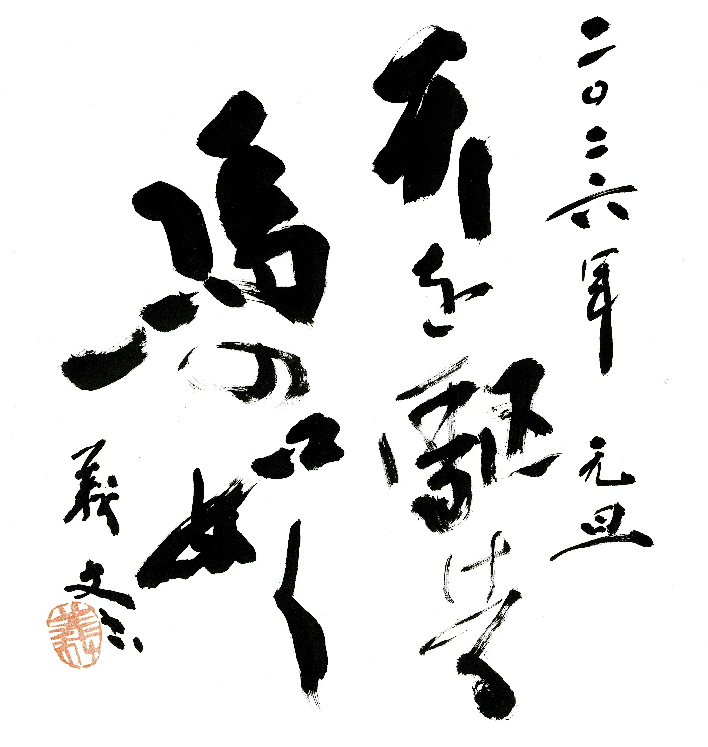 二〇二六年 元旦
天を駆ける
馬の如く
義文